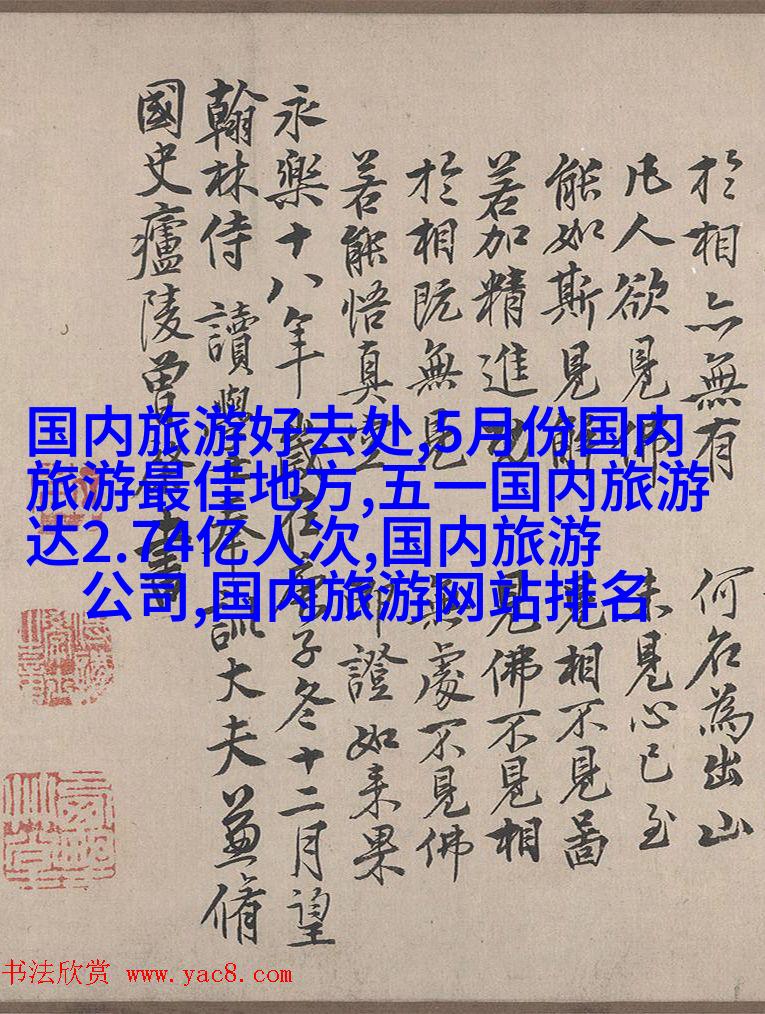 於相亦無有 何名為出山
凡人欲見佛 未見心已至
能如斯見解 見相不見啚
若加精進 見佛不見相
於相既無見 無處不見佛
若能悟真空 即證如来果
永樂十八年歲在庚子冬十二月望
翰林侍讀學士奉訓大夫兼脩
國史廬陵曾棨書
国内旅游好去处,5月份国内
旅游最佳地方,五一国内旅游
达2.74亿人次,国内旅游
公司,国内旅游网站排名
书法欣赏 www.yac8.com